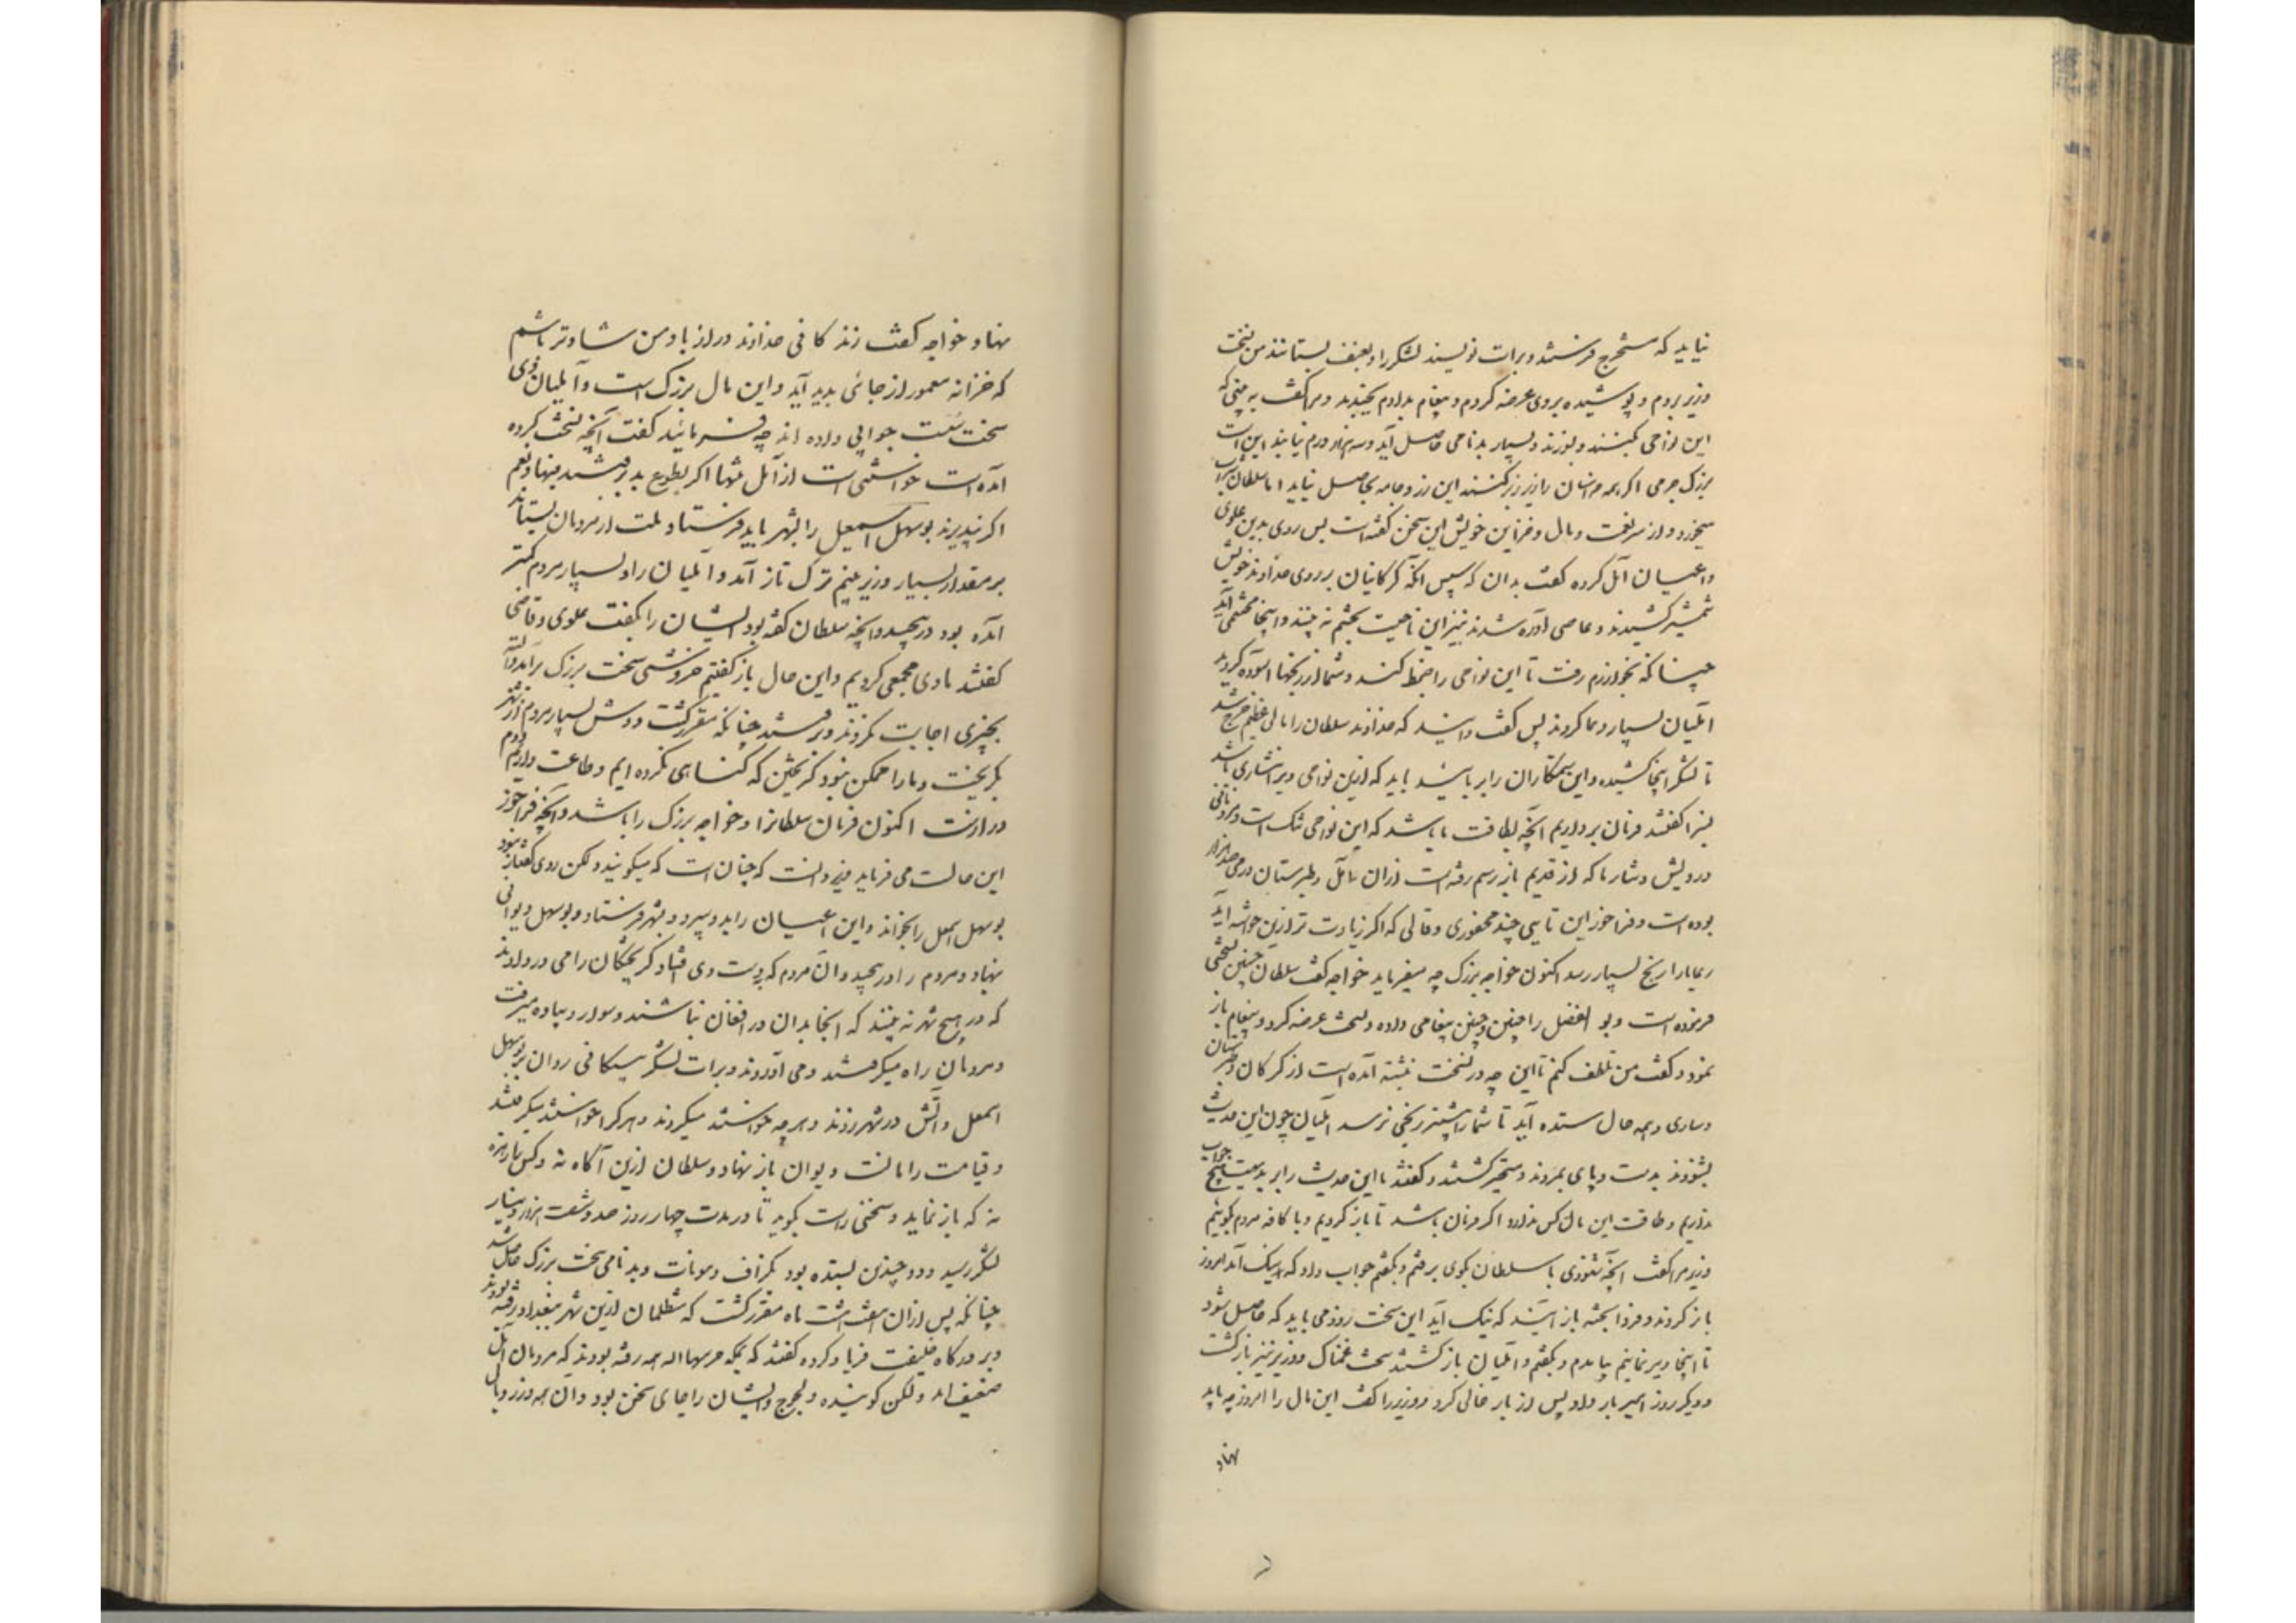 نیاید که مستخرج فرستند و برات نویسند لشکر را و بعنف بستانند من نسخت
وزیر بردم و پوشیده بروی عرضه کردم و پیغام بدادم بخندید و مرا گفت به بینی که
این نواحی بکنند و بسوزند و بسیار بدنامی حاصل آید و سه هزار درم نیابند اینت
بزرگ جرمی اگر همه خراسان را زیر و زبر کنند این زر و جامه بحاصل نیاید اما سلطان شراب
میخورد و از سر نعمت و مال و خزاین خویش این سخن گفته است پس روی بدین علوی
و اعیان آمل کرده گفت بدان که سپس انکه گرگانیان بر روی خداوند خویش
شمشیر کشیدند و عاصی آواره شدند نیز این ناحیت بچشم نه بینند و اینجا محتشمی آید
چنانکه بخوارزم رفت تا این نواحی را ضبط کند و شما از رنجها آسوده گردید
آملیان بسیار دعا کردند پس گفت دانید که خداوند سلطان را مالی عظیم خرج شد
تا لشکر اینجا کشیده و این ستمکاران را برمانید باید که ازین نواحی ویرا نثاری باشد
بسزا گفتند فرمان برداریم آنچه بطاقت ما باشد که این نواحی تنک است و مردمانی
درویش و نثار ما که از قدیم باز رسم رفته است ازان آمل و طبرستان درمی صد هزار
بوده است و فراخور این تایی چند محفوری و قالی که اگر زیادت تر ازین خواسته آید
رعایا را رنج بسیار رسد اکنون خواجه بزرگ چه میفرماید خواجه گفت سلطان چنین نسختی
فرموده است و بو الفضل را چنین و چنین پیغامی داده و نسخت عرضه کرد و پیغام باز
نمود و گفت من تلطف کنم تا این چه در نسخت نبشته آمده است از گرگان و طبرستان
و ساری و همه محال ستده آید تا شما را بیشتر رنجی نرسد آملیان چون این حدیث
بشنودند بدست و پای بمردند و متحیر گشتند و گفتند ما این حدیث را بر بدیهت هیچ جواب
نداریم و طاقت این مال کس ندارد اگر فرمان باشد تا باز گردیم و با کافه مردم بگوییم
وزیر مرا گفت آنچه شنودی با سلطان بگوی برفتم و بگفتم جواب داد که نیک آمد امروز
باز گردند و فردا پخته باز آیند که نیک آید این سخت زود می باید که حاصل شود
تا اینجا دیر نمانیم بیامدم و بگفتم و آملیان باز گشتند سخت غمناک و وزیر نیز بازگشت
و دیگر روز امیر بار داد و پس از بار خالی کرد و وزیر را گفت این مال را امروز چه باید
نهاد
نهاد و خواجه گفت زندگانی خداوند دراز باد من شادتر باشم
که خزانه معمور از جائی پدید آید و این مال بزرگ است و آملیان دی
سخت سست جوابی داده اند چه فرمائید گفت آنچه نسخت کرده
آمده است خواستنی است از آمل تنها اگر بطوع بدرفتند فبها و نعم
اگر نپذیرند بوسهل اسمعیل را بشهر باید فرستاد و بلت از مردمان بستاند
بر مقدار بسیار وزیر بنیم ترک باز آمد و آملیان را و بسیار مردم کمتر
آمده بود در پیچید و آنچه سلطان گفته بود ایشان را بگفت علوی و قاضی
گفتند ما دی مجمعی کردیم و این حال باز گفتیم خروشی سخت بزرگ برآمد و البته
بچیزی اجابت نکردند و برفتند چنانکه مقرر گشت دوش بسیار مردم از شهر
بگریخت و ما را ممکن نبود گریختن که گناهی نکرده ایم و طاعت داریم
دراز است اکنون فرمان سلطانرا و خواجه بزرگ را باشد و آنچه فراخور
این حالست می فرماید وزیر دانست که چنان است که میگویند ولکن روی گفتار نبود
بوسهل اسمعل را بخواند و این اعیان را بدو سپرد و بشهر فرستاد و بوسهل دیوانی
بنهاد و مردم را در پیچید و آن مردم که بدست وی افتاد گریختگان را می در دادند
که در هیچ شهر نه بینند که آنجا بدان در افغان نباشند و سوار و پیاده میرفت
و مردمان را میگرفتند و می آوردند و برات لشکر بیستگانی روان بر بوسهل
اسمعل و آتش در شهر زدند و هرچه خواستند میکردند و هرکرا خواستند میگرفتند
و قیامت را مانست دیوان باز نهاده و سلطان ازین آگاه نه و کس را زهره
نه که باز نماید و سخنی راست بگوید تا در مدت چهار روز صد و شصت هزار دینار
لشکر رسید و دو چندین بستده بود بگزاف و مونات و بدنامی سخت بزرگ حاصل شد
چنانکه پس ازان هفت هشت ماه مقرر گشت که متظلمان ازین شهر ببغداد رفته بودند
و بر درگاه خلیفت فریاد کرده گفتند که بمکه حرسها الله هم رفته بودند که مردمان آمل
ضعیف اند ولکن گوینده و لجوج و ایشان را جای سخن بود و آن همه وزر و بال